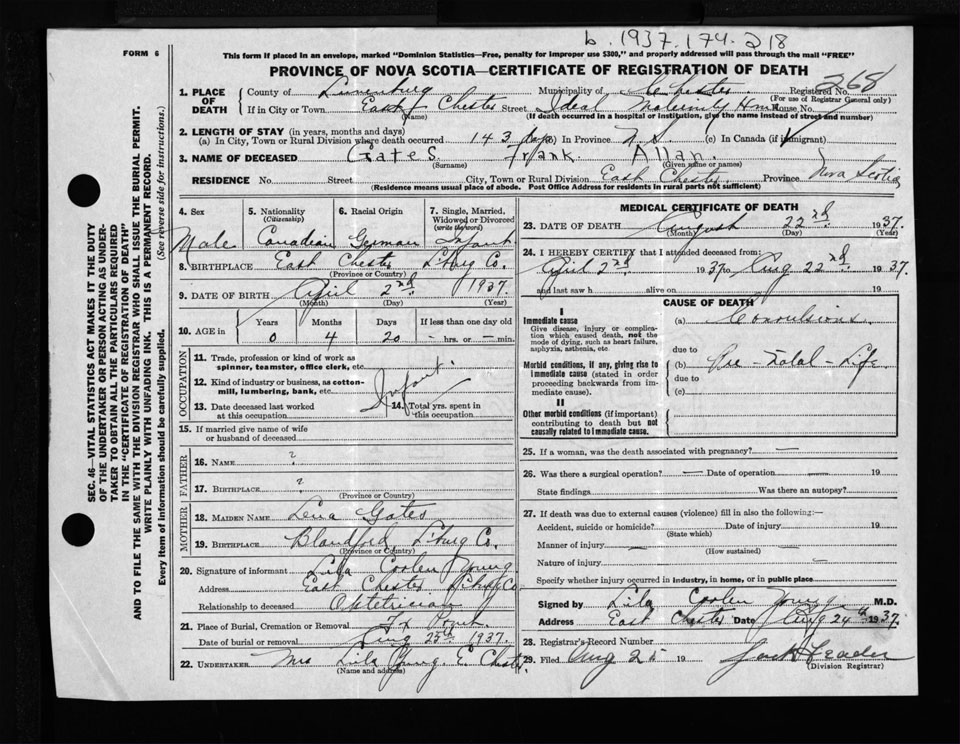 b. 1937.174.218
FORM 6
This form if placed in an envelope, marked "Dominion Statistics—Free, penalty for improper use $300," and properly addressed will pass through the mail "FREE"
PROVINCE OF NOVA SCOTIA—CERTIFICATE OF REGISTRATION OF DEATH
1. PLACE OF DEATH County of Lunenburg Municipality of Chester. Registered No. 268
(For use of Registrar General only)
If in City or Town East Chester Street Ideal Maternity Home House No.
(Name) (If death occurred in a hospital or institution, give the name instead of street and number)
2. LENGTH OF STAY (in years, months and days)
(a) In City, Town or Rural Division where death occurred 143 days (b) In Province N.S. (c) In Canada (if immigrant)
3. NAME OF DECEASED Gates. Frank. Allan.
(Surname) (Given name or names)
RESIDENCE No. Street City, Town or Rural Division East Chester. Province Nova Scotia
(Residence means usual place of abode. Post Office Address for residents in rural parts not sufficient)
SEC. 46—VITAL STATISTICS ACT MAKES IT THE DUTY
OF THE UNDERTAKER OR PERSON ACTING AS UNDER-
TAKER TO OBTAIN ALL THE PARTICULARS REQUIRED
IN THE "CERTIFICATE OF REGISTRATION OF DEATH"
AND TO FILE THE SAME WITH THE DIVISION REGISTRAR WHO SHALL ISSUE THE BURIAL PERMIT.
WRITE PLAINLY WITH UNFADING INK. THIS IS A PERMANENT RECORD.
Every item of information should be carefully supplied. (See reverse side for instructions.)
4. Sex 5. Nationality (Citizenship) 6. Racial Origin 7. Single, Married, Widowed or Divorced (write the word)
Male Canadian German Infant
8. BIRTHPLACE East Chester L'burg Co.
(Province or Country)
9. DATE OF BIRTH April 2nd 1937
(Month) (Day) (Year)
10. AGE in Years Months Days If less than one day old
0 4 20 - hrs. or - min.
OCCUPATION
11. Trade, profession or kind of work as spinner, teamster, office clerk, etc.
12. Kind of industry or business, as cotton-mill, lumbering, bank, etc. Infant.
13. Date deceased last worked at this occupation
14. Total yrs. spent in this occupation
15. If married give name of wife or husband of deceased
FATHER
16. NAME ?
17. BIRTHPLACE ?
(Province or Country)
MOTHER
18. MAIDEN NAME Lena Gates
19. BIRTHPLACE Blandford, L'burg Co.
(Province or Country)
20. Signature of informant Lila Coolen Young
Address East Chester
Relationship to deceased Obstetrician
21. Place of Burial, Cremation or Removal
Date of burial or removal Aug 1937.
22. UNDERTAKER Mrs Lila Young. E. Chester
(Name and address)
MEDICAL CERTIFICATE OF DEATH
23. DATE OF DEATH August 22nd 1937.
(Month) (Day) (Year)
24. I HEREBY CERTIFY that I attended deceased from:
April 2nd 1937 to Aug 22nd 1937.
and last saw h alive on 19
CAUSE OF DEATH
I
Immediate cause (a) Convulsions.
Give disease, injury or complication which caused death, not the mode of dying, such as heart failure, asphyxia, asthenia, etc.
due to
Morbid conditions, if any, giving rise to immediate cause (stated in order proceeding backwards from immediate cause). (b) Pre-Natal-Life
due to
(c)
II
Other morbid conditions (if important) contributing to death but not causally related to immediate cause.
25. If a woman, was the death associated with pregnancy? —
26. Was there a surgical operation? — Date of operation — 19
State findings Was there an autopsy?
27. If death was due to external causes (violence) fill in also the following:—
Accident, suicide or homicide? Date of injury 19
(State which)
Manner of injury —
(How sustained)
Nature of injury —
Specify whether injury occurred in industry, in home, or in public place
Signed by Lila Coolen Young M.D.
Address East Chester Date Aug 24th 1937.
28. Registrar's Record Number
29. Filed Aug 25 19
(Division Registrar)